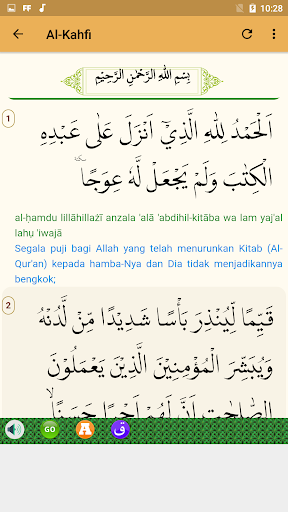 FF
10:28
Al-Kahfi
بِسْمِ اللّٰهِ الرَّحْمٰنِ الرَّحِيْمِ
1
اَلْحَمْدُ لِلّٰهِ الَّذِيْٓ اَنْزَلَ عَلٰى عَبْدِهِ
الْكِتٰبَ وَلَمْ يَجْعَلْ لَّهٗ عِوَجًاۜ
al-ḥamdu lillāhillażī anzala 'alā 'abdihil-kitāba wa lam yaj'al
lahụ 'iwajā
Segala puji bagi Allah yang telah menurunkan Kitab (Al-
Qur'an) kepada hamba-Nya dan Dia tidak menjadikannya
bengkok;
2
قَيِّمًا لِّيُنْذِرَ بَأْسًا شَدِيْدًا مِّنْ لَّدُنْهُ
وَيُبَشِّرَ الْمُؤْمِنِيْنَ الَّذِيْنَ يَعْمَلُوْنَ
الصّٰلِحٰتِ اَنَّ لَهُمْ اَجْرًا حَسَنًاۙ
GO
ق